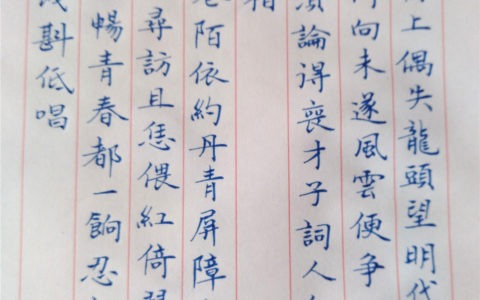 上偶失龍頭望明代
向未遂風雲便爭
須論得喪才子詞人
相
陌依約丹青屏障
尋訪且恁偎紅倚翠
暢青春都一餉忍
淺斟低唱